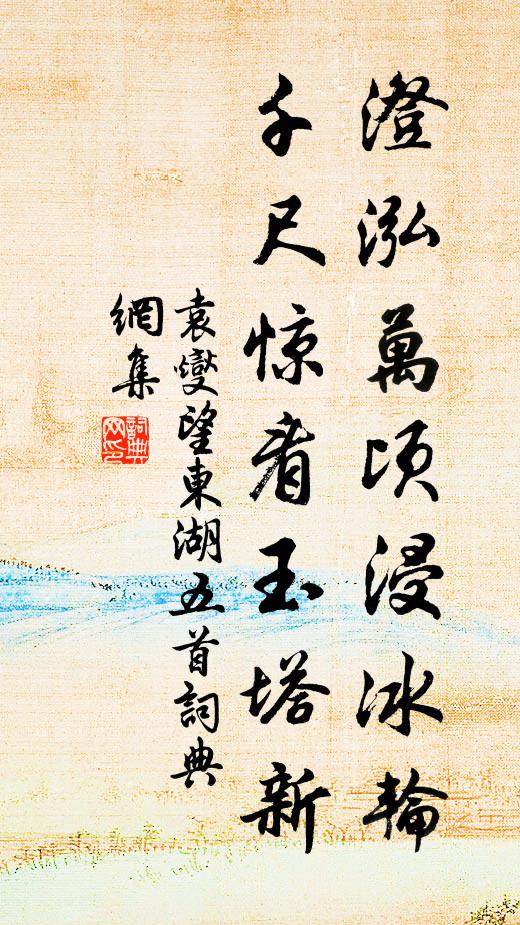 澄泓萬頃浸冰輪
千尺惊看玉塔新
袁燮望東湖五首詞典
網集
詞典网印